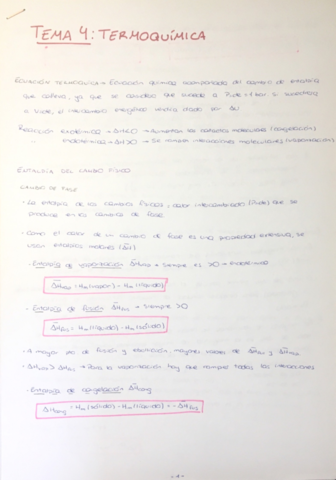 TEMA 4: TERMOQUÍMICA
Ecuación termoquímica: Ecuación química acompañada del cambio de entalpía
que conlleva, ya que se considera que sucede a P=cte=1 bar. Si sucediera
a V=cte, el intercambio energético vendría dado por ΔU
Reacción exotérmica → ΔH<0 → Aumentan los contactos moleculares (congelación)
" endotérmica → ΔH>0 → Se rompen interacciones moleculares (vaporización)
ENTALPÍA DEL CAMBIO FÍSICO
CAMBIO DE FASE
· La entalpía de los cambios físicos: calor intercambiado (P=cte) que se
produce en los cambios de fase.
· Como el calor de un cambio de fase es una propiedad extensiva, se
usan entalpías molares
- Entalpía de vaporización ΔHvap → siempre es >0 → endotérmica
ΔHvap = Hm (vapor) - Hm (líquido)
- Entalpía de fusión ΔHfus → siempre >0
ΔHfus = Hm (líquido) - Hm (sólido)
· A mayor pto de fusión y ebullición, mayores valores de ΔHfus y ΔHvap
· ΔHvap > ΔHfus → Para la vaporización hay que romper todas las interacciones
- Entalpía de congelación ΔHcong
ΔHcong = Hm (sólido) - Hm (líquido) = -ΔHfus
-1-